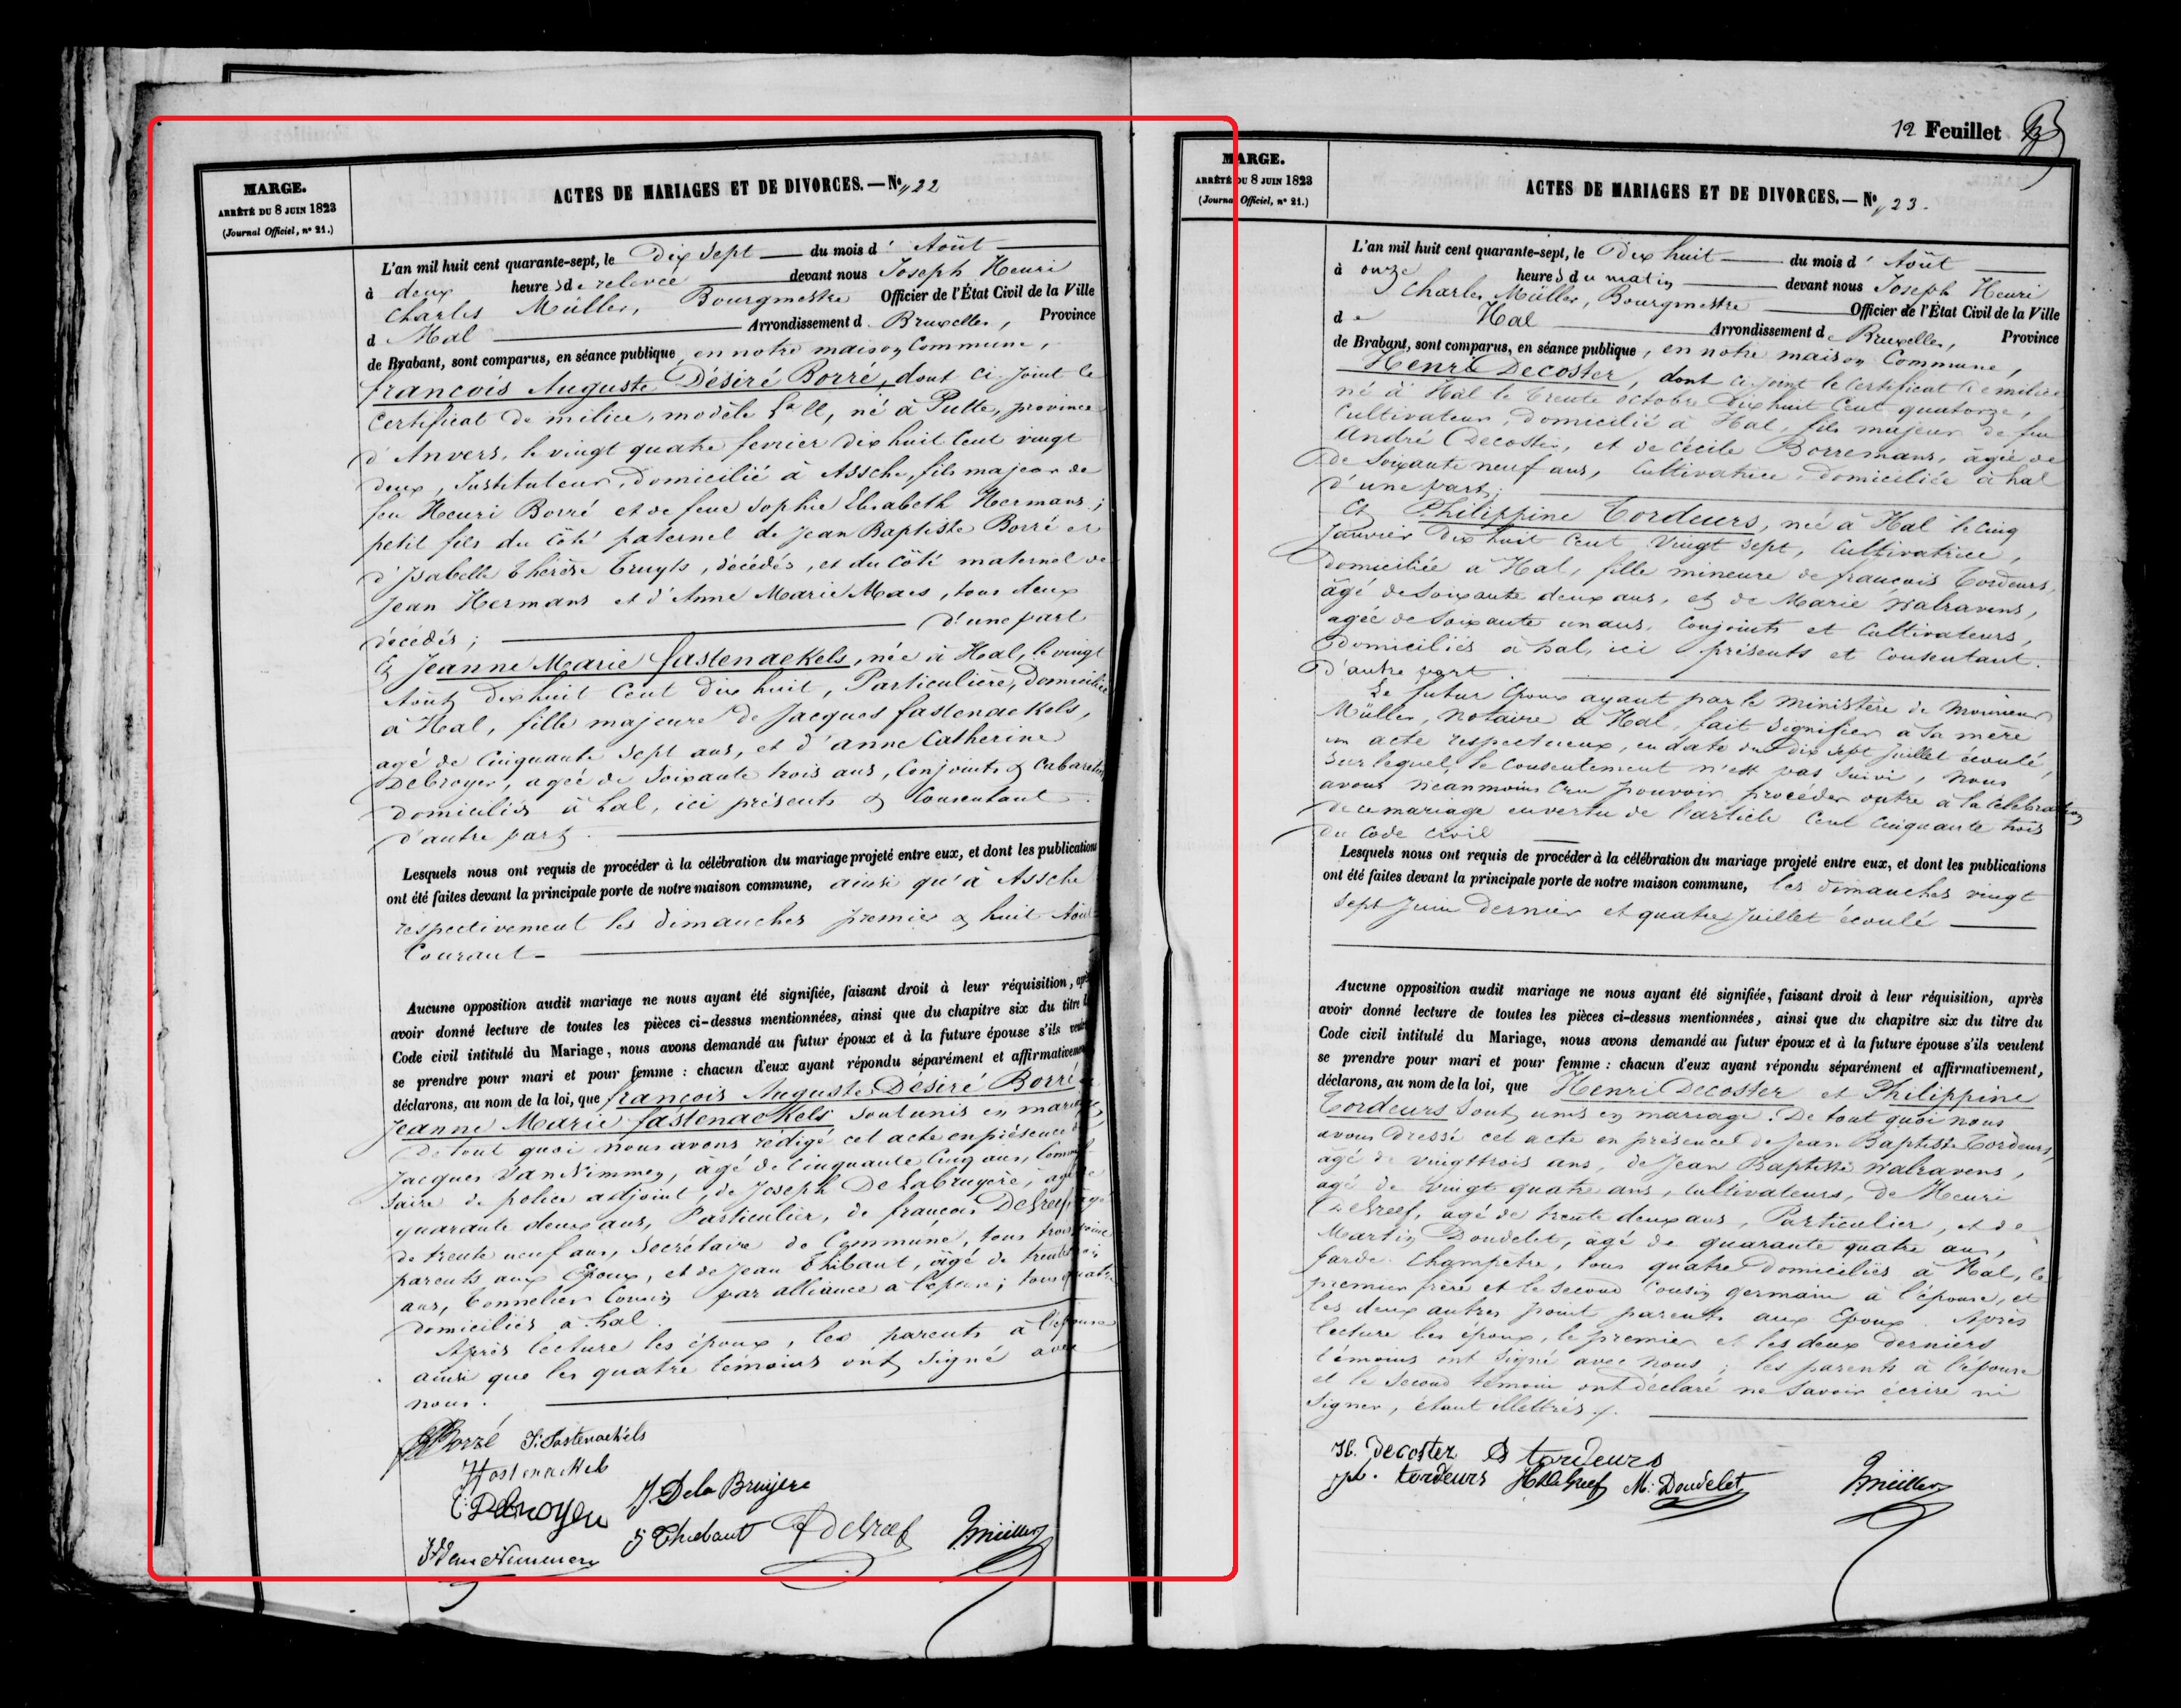 MARGE.
ARRÊTÉ DU 8 JUIN 1823
(Journal Officiel, n° 21.)
ACTES DE MARIAGES ET DE DIVORCES. — N° 22
L'an mil huit cent quarante-sept, le Dix Sept du mois d' Août
à deux heures de relevée devant nous Joseph Henri
Charles Müller, Bourgmestre Officier de l'État Civil de la Ville
d Hal Arrondissement d Bruxelles, Province
de Brabant, sont comparus, en séance publique, en notre maison Commune,
françois Auguste Désiré Borré, dont ci-joint le
Certificat de milice, modèle né à Putte, province
d'Anvers, le vingt quatre fevrier dix huit Cent vingt
deux, Instituteur, Domicilié à Assche, fils majeur de
feu Henri Borré et de feue Sophie Elisabeth Hermans;
petit fils du côté paternel de Jean Baptiste Borré et
d'Isabelle Thérèse Truyts, décédés, et du côté maternel de
Jean Hermans et d'Anne Marie Maes, tous deux
décédés; d'une part
Et Jeanne Marie fastenaekels, née à Hal, le vingt
Août dix huit Cent dix huit, Particulière, Domiciliée
à Hal, fille majeure de Jacques fastenaekels,
agé de Cinquante Sept ans, et d'anne Catherine
Debroyer, agée de Soixante trois ans, Conjoints & Cabaretiers
domiciliés à hal, ici présents & Consentant.
d'autre part.
Lesquels nous ont requis de procéder à la célébration du mariage projeté entre eux, et dont les publications
ont été faites devant la principale porte de notre maison commune, ainsi qu'à Assche
respectivement les dimanches premier & huit Août
Courant
Aucune opposition audit mariage ne nous ayant été signifiée, faisant droit à leur réquisition, après
avoir donné lecture de toutes les pièces ci-dessus mentionnées, ainsi que du chapitre six du titre
Code civil intitulé du Mariage, nous avons demandé au futur époux et à la future épouse s'ils
se prendre pour mari et pour femme : chacun d'eux ayant répondu séparément et affirmativement
déclarons, au nom de la loi, que françois Auguste Désiré Borré
Jeanne Marie fastenaekels sont unis en mariage,
De tout quoi nous avons rédigé cet acte en présence de
Jacques Van Nimmen, âgé de Cinquante Cinq ans, Commis-
saire de police adjoint, de Joseph De Labruyère, agé de
quarante deux ans, Particulier, de françois DeGreef, agé
de trente neuf ans, Secrétaire de Commune, tous trois point
parents aux Epoux, et de Jean Thibaut, âgé de trente
ans, Tonnelier Cousin par alliance à l'épouse; tous quatre
domiciliés à hal.
Après lecture les époux, les parents à l'épouse
ainsi que les quatre témoins ont signé avec
nous.
Borré J. Fastenaekels
Fastenaekels
C: Debroyer J De la Bruyere
J Van Nimmen J Thiebaut F DeGreef Jmüller
12 Feuillet
MARGE.
ARRÊTÉ DU 8 JUIN 1823
(Journal Officiel, n° 21.)
ACTES DE MARIAGES ET DE DIVORCES. — N° 23.
L'an mil huit cent quarante-sept, le Dix huit du mois d' Août
à onze heures du matin devant nous Joseph Henri
Charles Müller, Bourgmestre Officier de l'État Civil de la Ville
de Hal Arrondissement de Bruxelles, Province
de Brabant, sont comparus, en séance publique, en notre maison Commune,
Henri Decoster, dont ci-joint le Certificat de milice,
né à Hal le trente octobre Dix huit Cent quatorze,
Cultivateur, domicilié à Hal, fils majeur de feu
André Decoster, et de Cécile Borremans, âgée de
de Soixante neuf ans, Cultivatrice, domiciliée à hal
d'une part;
Et Philippine Tordeurs, née à Hal le Cinq
Janvier Dix huit Cent Vingt sept, Cultivatrice,
domiciliée à Hal, fille mineure de françois Tordeurs,
âgé de Soixante deux ans, et de Marie Walravens,
agée de Soixante un ans, Conjoints et Cultivateurs,
domiciliés à hal, ici présents et Consentant.
d'autre part.
Le futur Epoux ayant par le ministère de Monsieur
Müller, Notaire à Hal, fait signifier à Sa mère
un acte respectueux, en date du dix sept Juillet écoulé,
Sur lequel, le Consentement n'est pas Suivi, Nous
avons néanmoins Cru pouvoir procéder outre à la Célébration
de ce mariage en vertu de l'article Cent Cinquante trois
du Code Civil
Lesquels nous ont requis de procéder à la célébration du mariage projeté entre eux, et dont les publications
ont été faites devant la principale porte de notre maison commune, les dimanches vingt
sept Juin Dernier et quatre Juillet écoulé
Aucune opposition audit mariage ne nous ayant été signifiée, faisant droit à leur réquisition, après
avoir donné lecture de toutes les pièces ci-dessus mentionnées, ainsi que du chapitre six du titre du
Code civil intitulé du Mariage, nous avons demandé au futur époux et à la future épouse s'ils veulent
se prendre pour mari et pour femme : chacun d'eux ayant répondu séparément et affirmativement,
déclarons, au nom de la loi, que Henri Decoster et Philippine
Tordeurs Sont unis en mariage. De tout quoi nous
avons Dressé cet acte en présence de Jean Baptiste Tordeurs,
âgé de vingt trois ans, de Jean Baptiste Walravens,
agé de vingt quatre ans, Cultivateurs, de Henri
DeGreef, agé de trente deux ans, Particulier, et de
Martin Doudelet, agé de quarante quatre ans,
garde Champêtre, tous quatre Domiciliés à Hal, le
premier frère et le second Cousin germain à l'épouse, et
les deux autres point parents aux Epoux. Après
lecture les époux, le premier et les deux derniers
témoins ont signé avec Nous; les parents à l'épouse
et le Second temoin ont déclaré ne Savoir écrire ni
Signer, étant illettrés.
H. Decoster P tordeurs
J.b. tordeurs H DeGreef M: Doudelet Jmüller